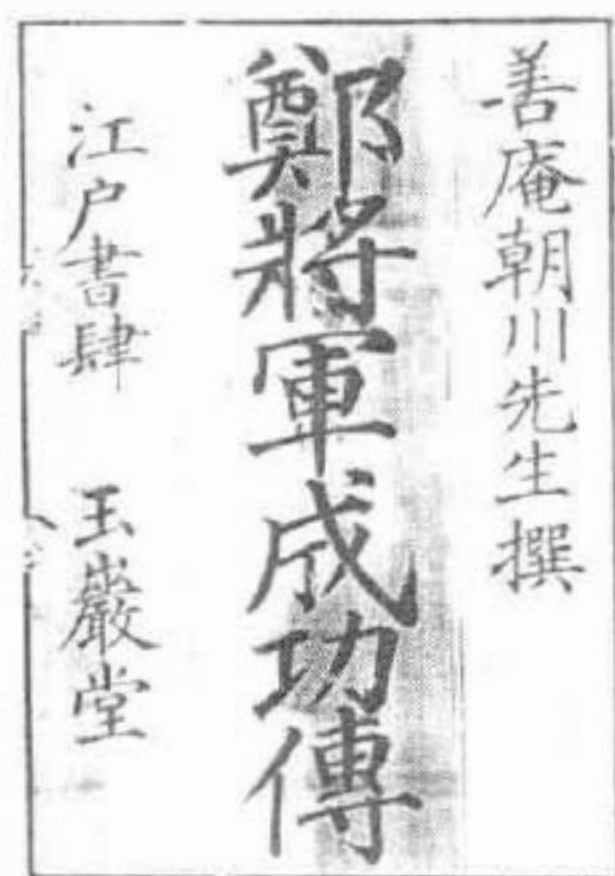 善庵朝川先生撰
鄭將軍成功傳
江户書肆　玉巖堂